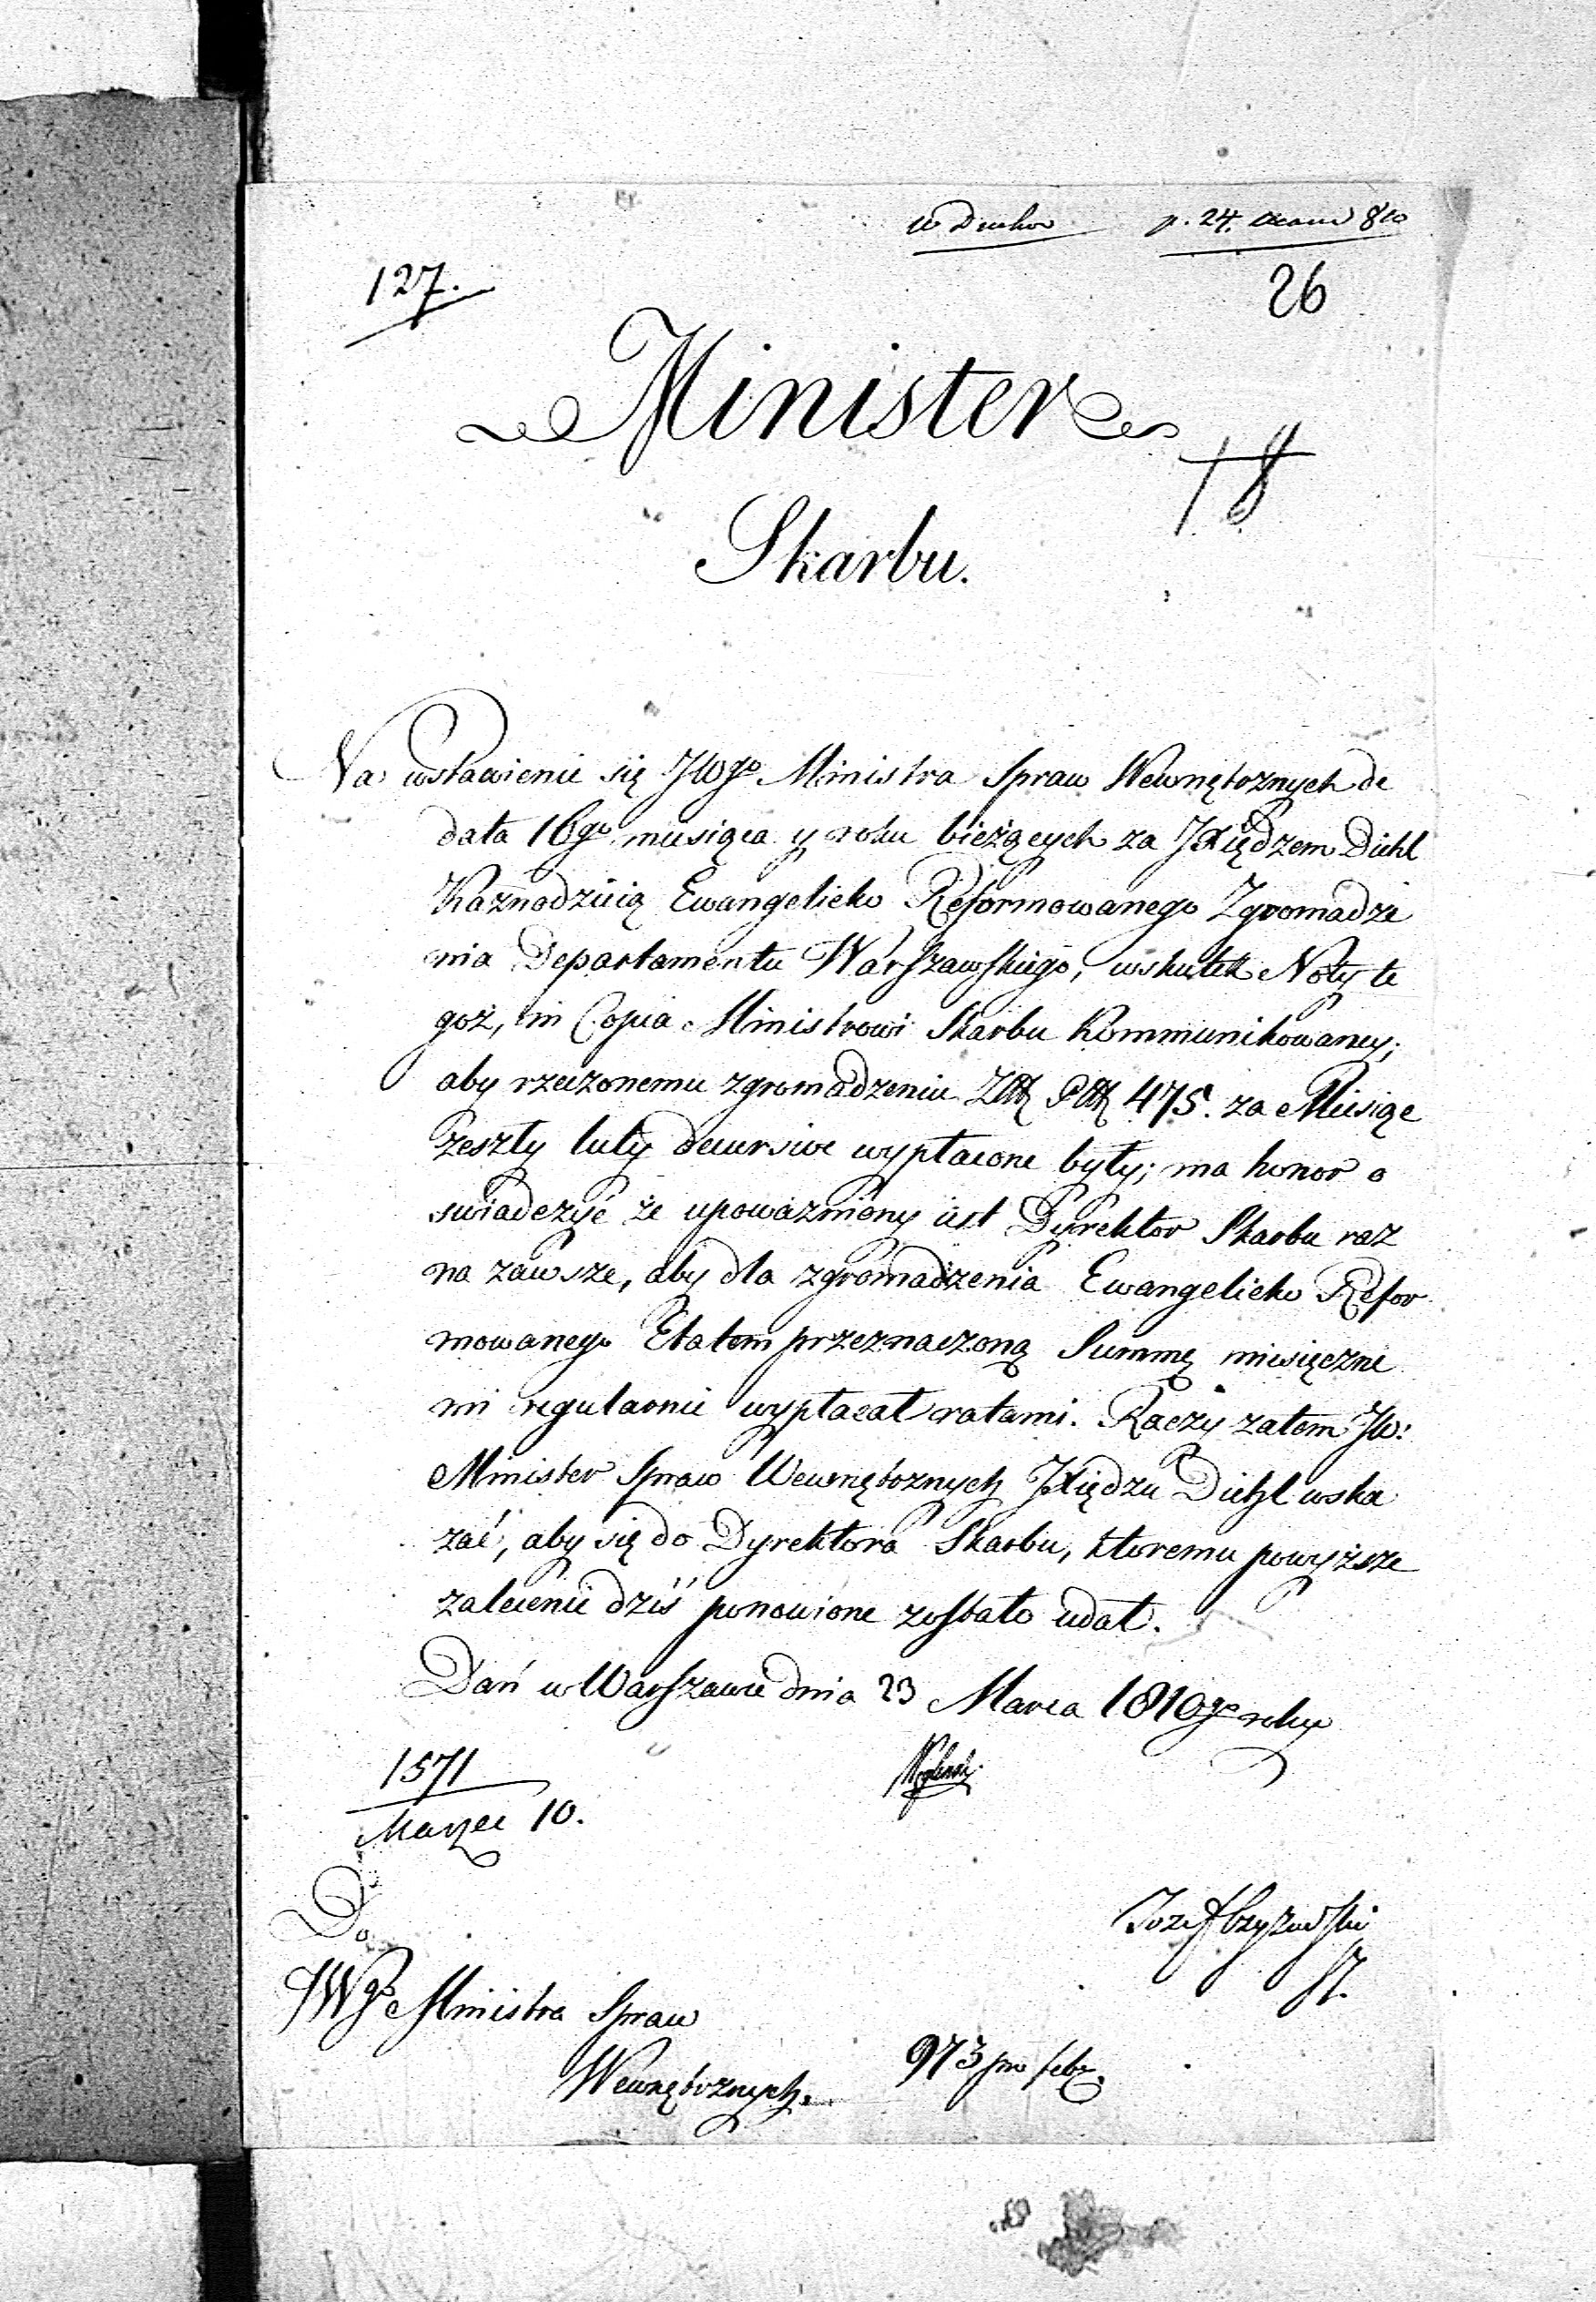 w Duchow p. 24. Marca 810
127.
26
Minister
Skarbu.
Na wstawienie się JWgo Ministra Spraw Wewnętrznych de
data 16go miesiąca y roku bieżących za JXiędzem Diehl
Kaznodzieią Ewangelicko Reformowanego Zgromadze
nia Departamentu Warszawskiego, wskutek Noty te
goż, in Copia Ministrowi Skarbu Kommunikowaney;
aby rzeczonemu zgromadzeniu Złł Płł 475. za Miesiąc
zeszły luty decursive wypłacone były; ma honor o
świadczyć że upoważniony iest Dyrektor Skarbu raz
na zawsze, aby dla zgromadzenia Ewangelicko Refor
mowanego Etatem przeznaczoną Summę miesięczne
mi regularnie wypłacał ratami. Raczy zatem JW:
Minister Spraw Wewnętrznych JXiędzu Diehl wska
zać, aby się do Dyrektora Skarbu, ktoremu powyższe
zalecenie dziś ponowione zostało udał.
Dań w Warszawie dnia 23 Marca 1810go roku
1571
Marzec 10.
Do
JWgo Ministra Spraw
Wewnętrznych.
Jozef
973 pro febr.